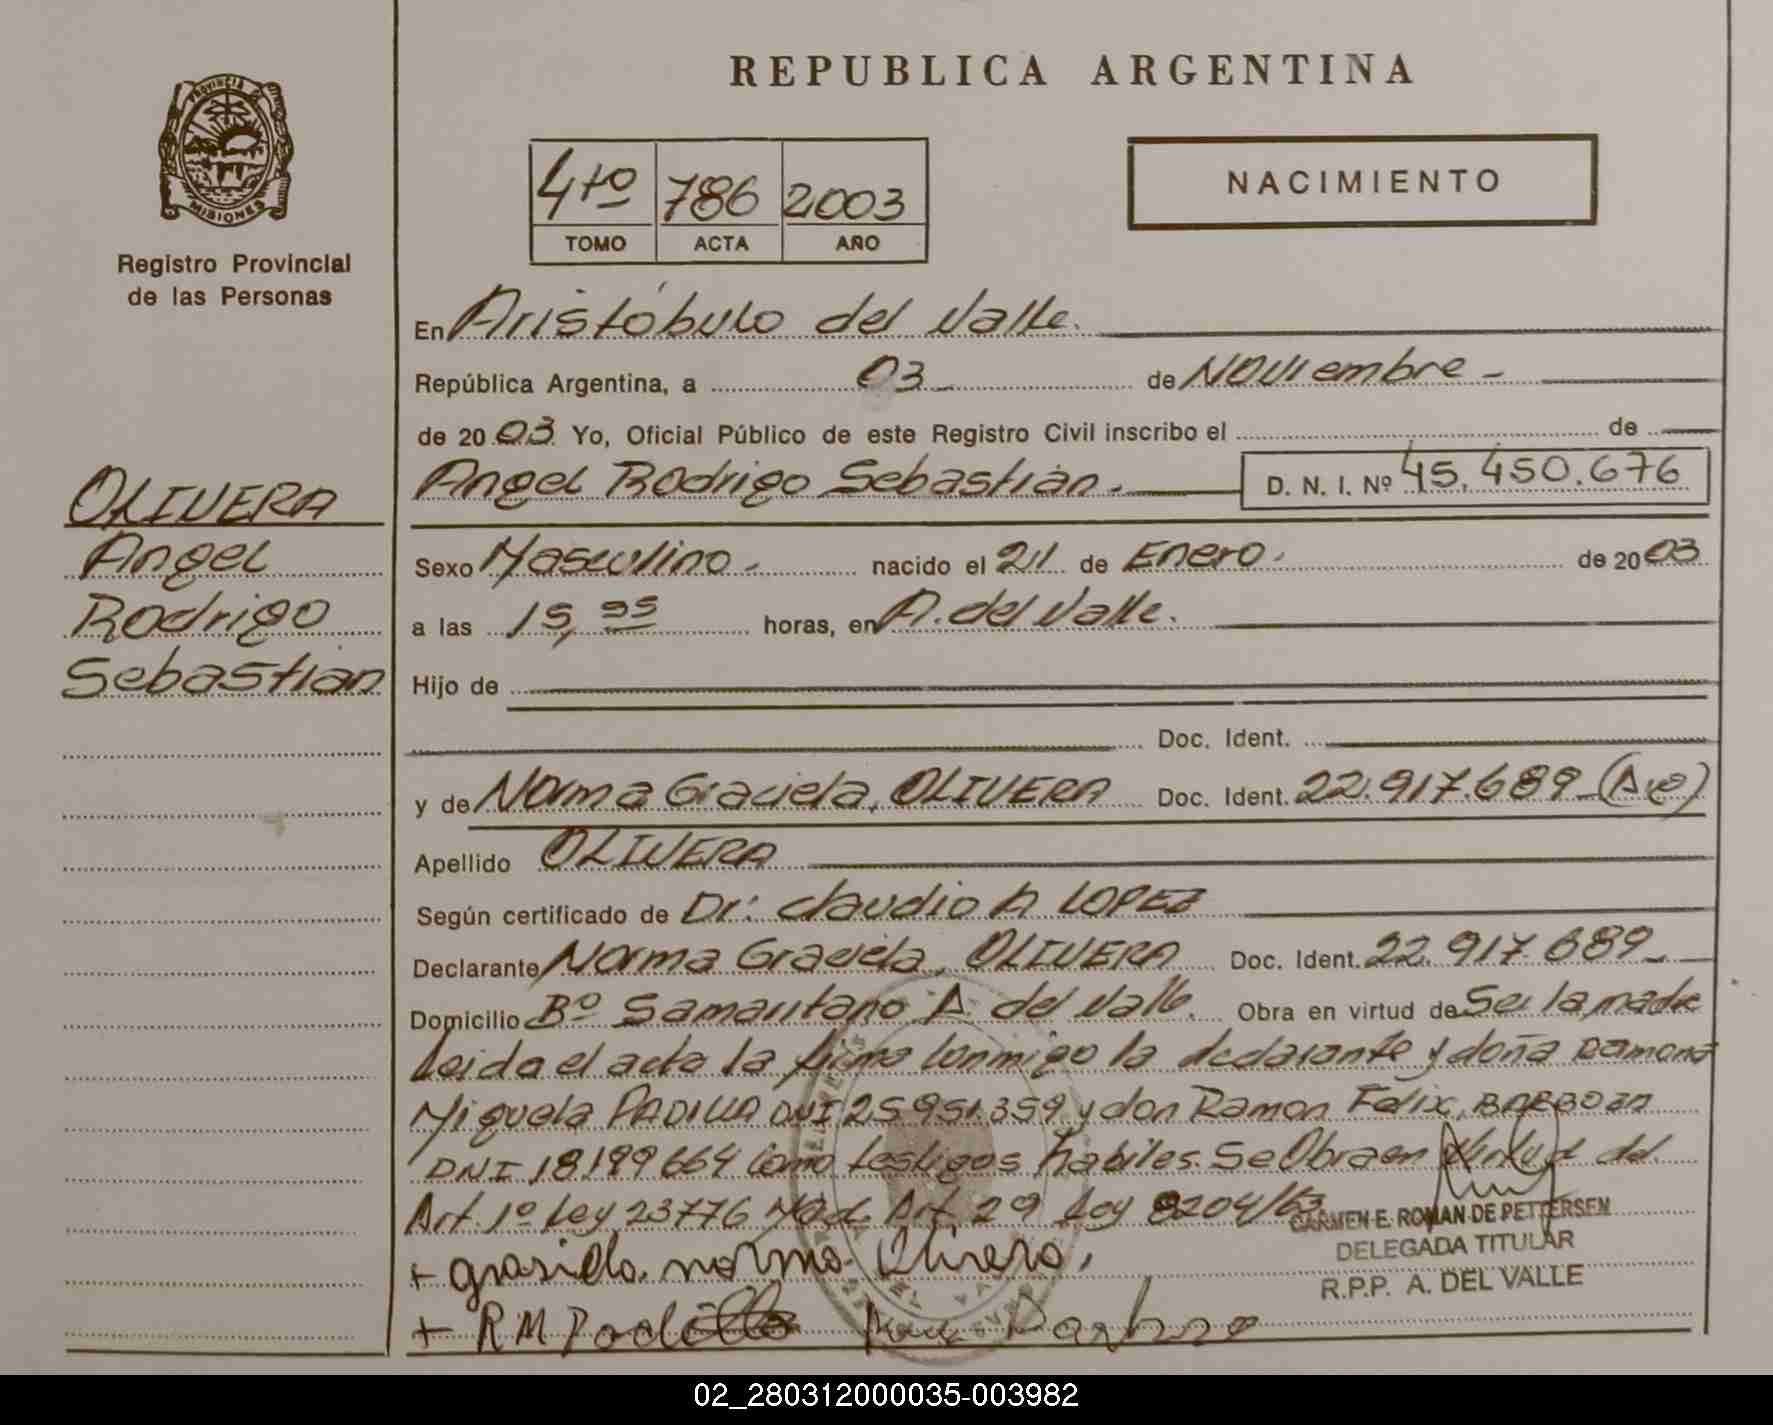 REPUBLICA ARGENTINA
PROVINCIA DE
MISIONES
Registro Provincial
de las Personas
4to 786 2003
TOMO ACTA AÑO
NACIMIENTO
En Aristóbulo del Valle.
República Argentina, a 03 de Noviembre
de 2003 Yo, Oficial Público de este Registro Civil inscribo el de
Angel Rodrigo Sebastián. D. N. I. Nº 45.450.676
OLIVERA
Angel
Rodrigo
Sebastián
Sexo Masculino. nacido el 21 de Enero. de 2003
a las 15, horas, en A. del Valle.
Hijo de
Doc. Ident.
y de Norma Graciela, OLIVERA Doc. Ident. 22.917.689
Apellido OLIVERA
Según certificado de Dr. Claudio A LOPEZ
Declarante Norma Graciela, OLIVERA Doc. Ident. 22.917.689
Domicilio Bº Samaritano A. del Valle. Obra en virtud de Ser la madre
Leida el acta la firma conmigo la declarante y doña Ramona
Miguela PADILLA DNI 25951.359 y don Ramon Felix, BARBOZA
DNI 18.199664 como testigos habiles. Se Obra en Virtud del
Art 1º Ley 23776 Mod. Art 29 Ley 8204/63
CARMEN E. ROMAN DE PETTERSEN
DELEGADA TITULAR
R.P.P. A. DEL VALLE
+ grasiela, norma Olivera,
+ RM Padilla
02_280312000035-003982